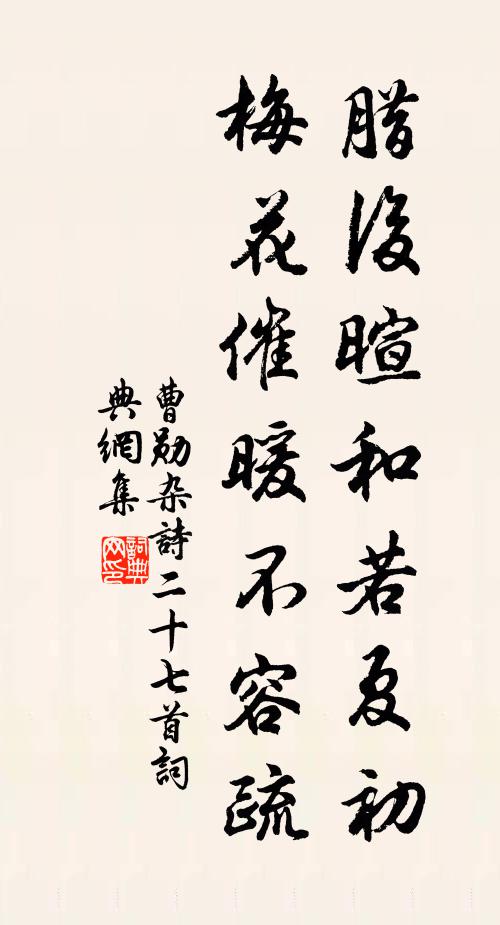 腊後暄和若夏初
梅花催暖不容疏
曹勛杂詩二十七首詞
典網集
詞典网印